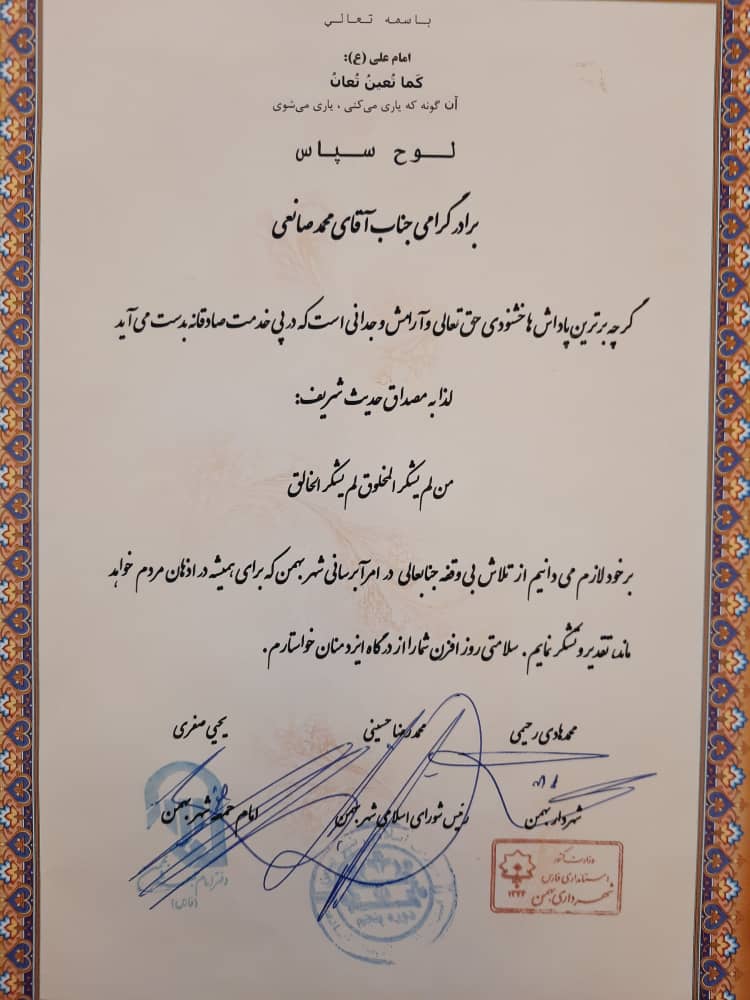 باسمه تعالی
امام علی (ع):
کَما تُعینُ تُعانُ
آن گونه که یاری می‌کنی ، یاری می‌شوی
لوح سپاس
برادر گرامی جناب آقای محمد صانعی
گرچه برترین پاداش ها خشنودی حق تعالی و آرامش وجدانی است که در پی خدمت صادقانه بدست می آید
لذا به مصداق حدیث شریف:
من لم یشکر المخلوق لم یشکر الخالق
بر خود لازم می دانیم از تلاش بی وقفه جنابعالی در امر آبرسانی شهر بهمن که برای همیشه در اذهان مردم خواهد
ماند، تقدیر و تشکر نمایم. سلامتی روز افزن شما را از درگاه ایزد منان خواستارم.
محمدهادی رحیمی محمدرضا حسینی یحیی صفری
شهردار بهمن رئیس شورای اسلامی شهر بهمن امام جمعه شهر بهمن
وزارت کشور
استانداری فارس
شهرداری بهمن
۱۳۷۴
دفتر امام
(فارس)